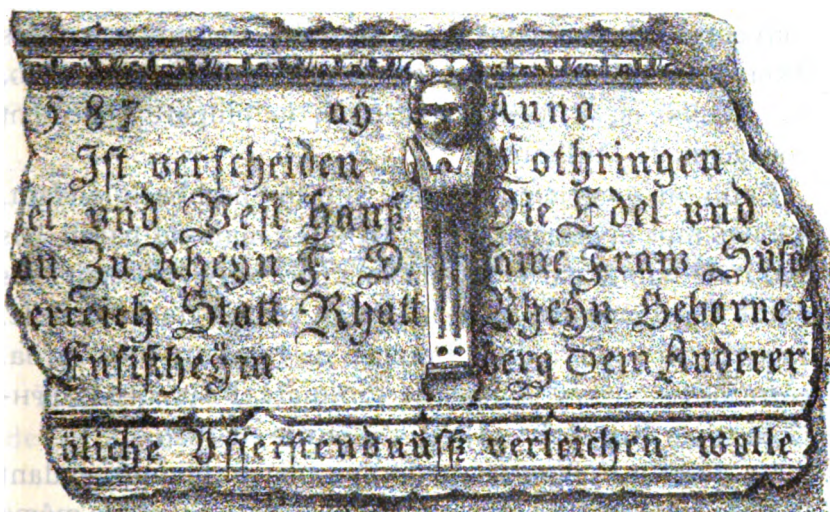 587 aÿ
Iſt verſcheiden
el vnd Veſt Hanß
an Zu Rheÿn F. D.
erreich Statt Rhatt
Enſißheÿm
Anno
Lothringen
Die Edel vnd
ſame Fraw Süſa
Rheÿn Geborne v
berg Dem Anderer
öliche Vfferſtendnüſß verleichen wolle